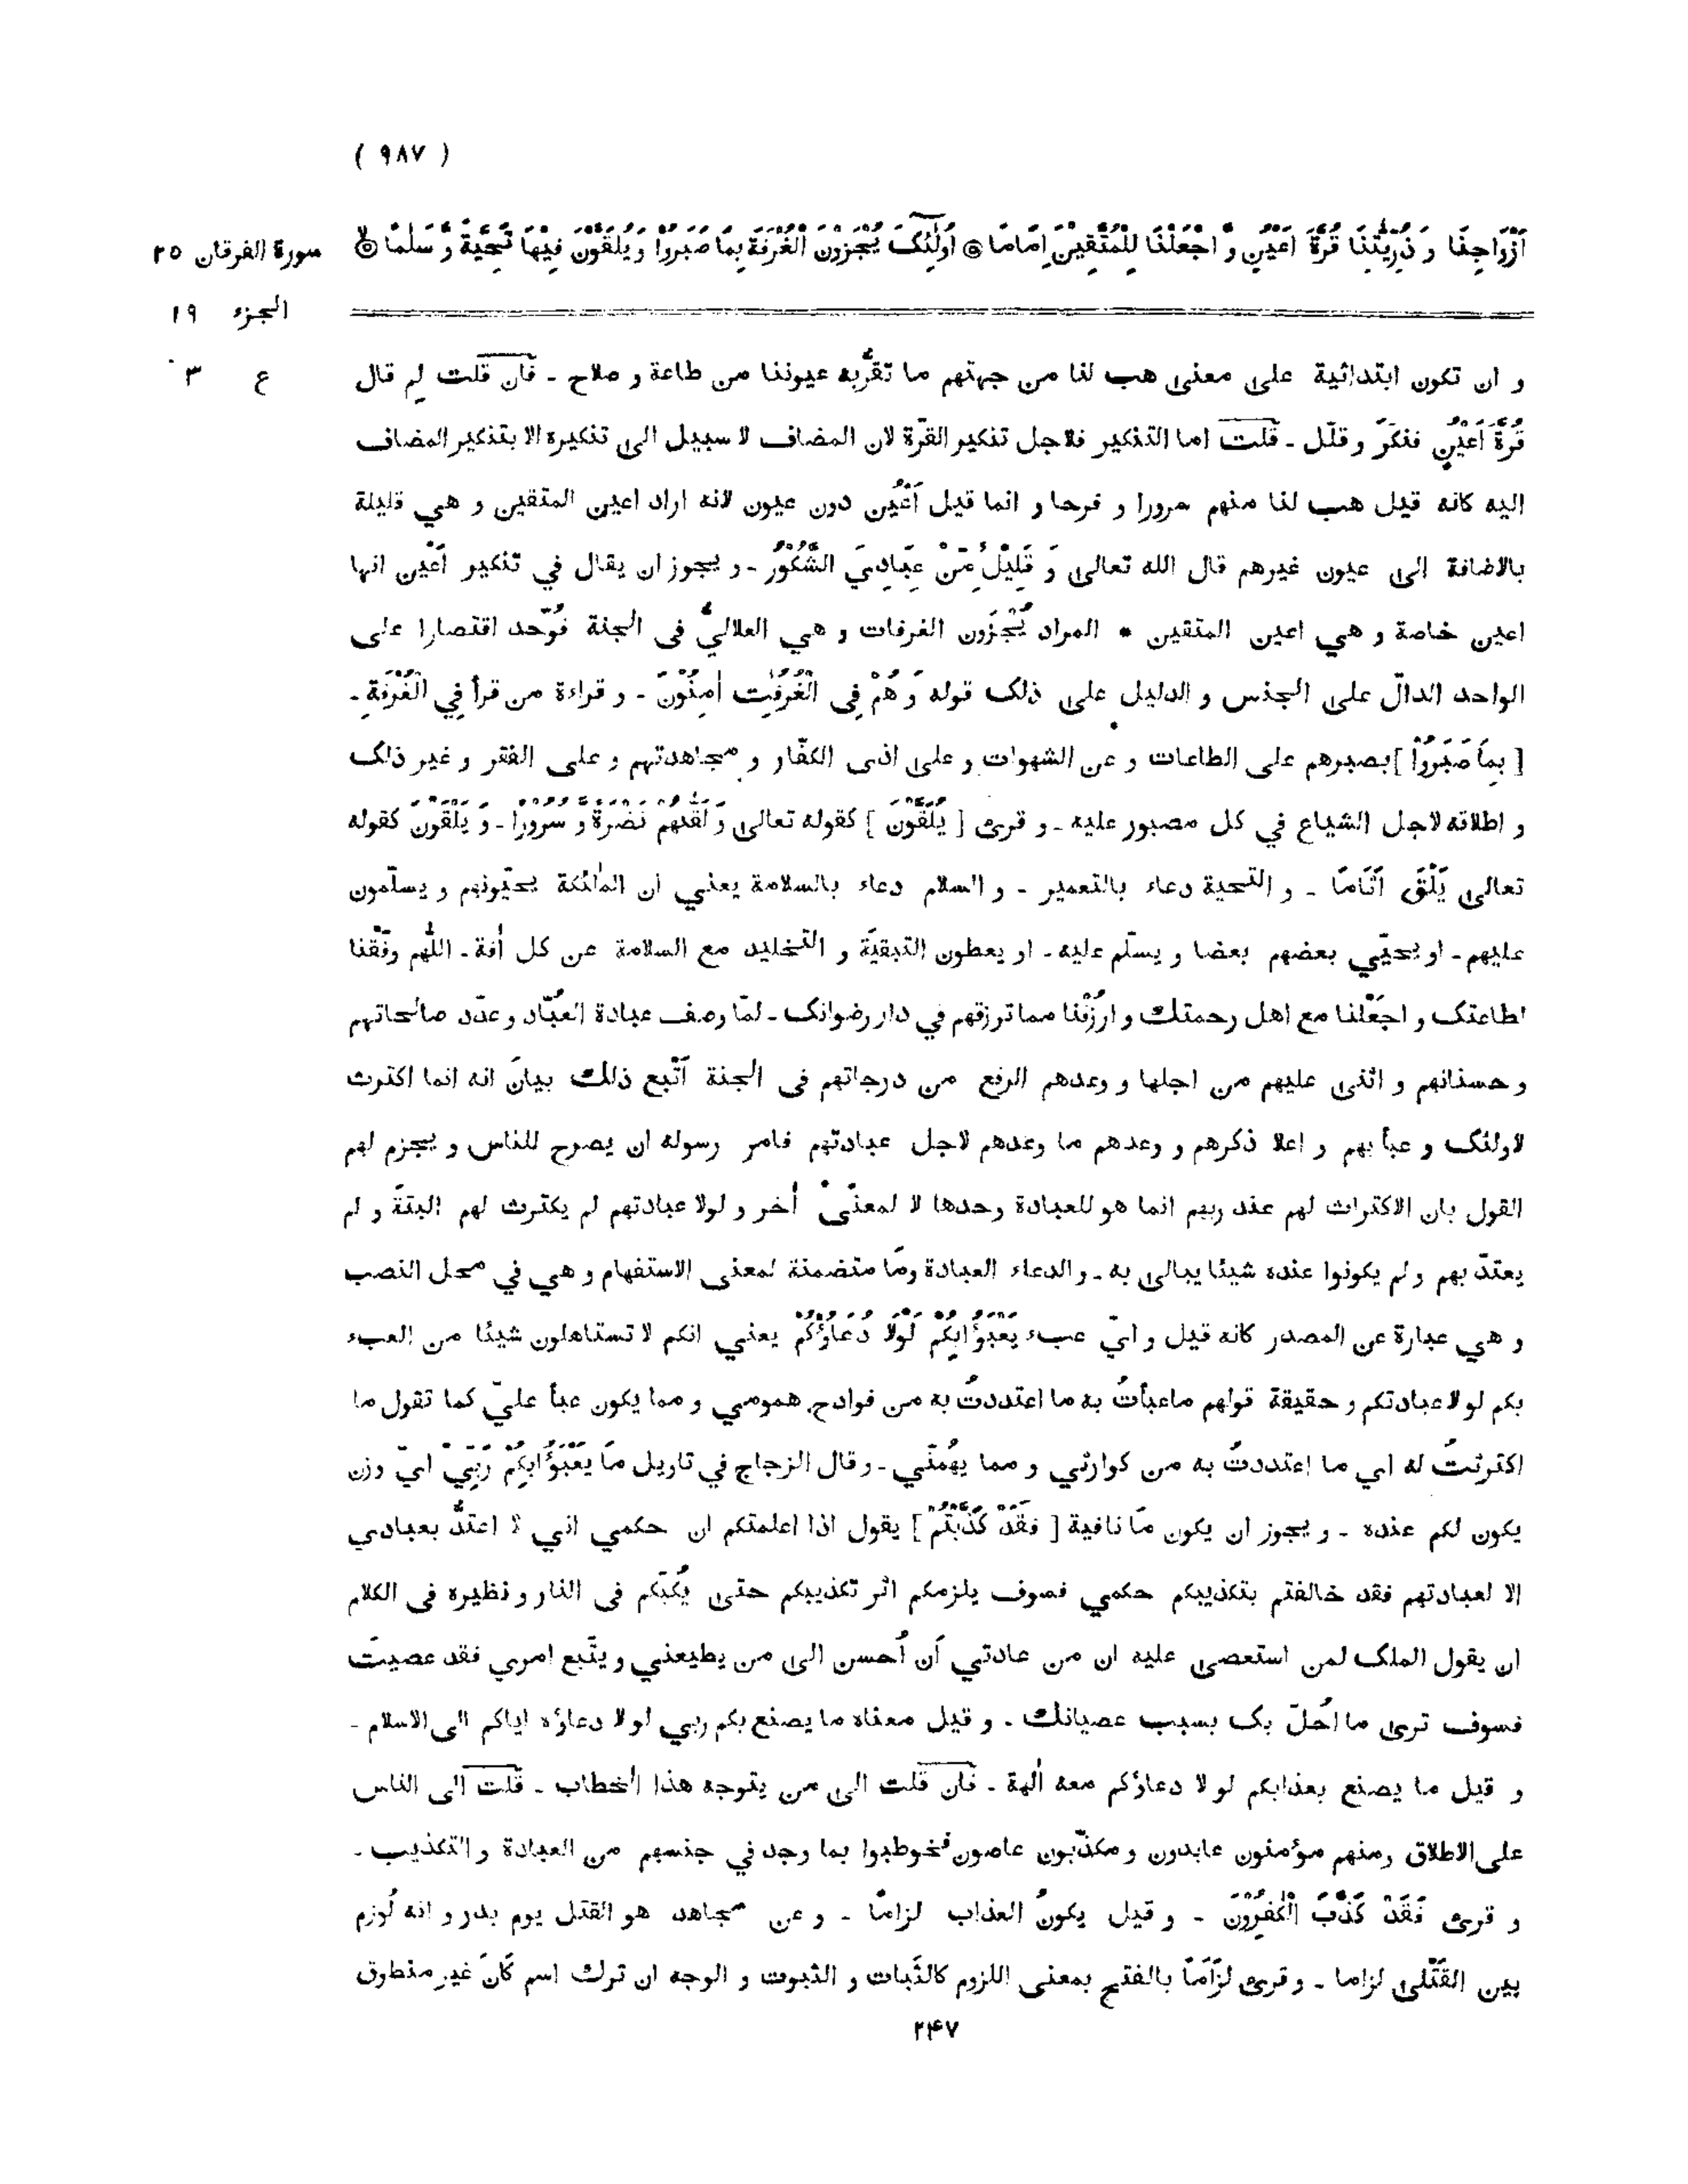 ( ٩٨٧ )
أَزْوَاجِنَا وَ ذُرِّيّٰتِنَا قُرَّةَ اَعْيُنٍ وَّ اجْعَلْنَا لِلْمُتَّقِيْنَ اِمَامًا ۞ اُولٰٓئِكَ يُجْزَوْنَ الْغُرْفَةَ بِمَا صَبَرُوْا وَ يُلَقَّوْنَ فِيْهَا تَحِيَّةً وَّ سَلٰمًا ۞ لا
سورة الفرقان ٢٥
الجزء ١٩
ع ٣
و ان تكون ابتدائية على معنى هب لنا من جهتهم ما تقرُّبه عيوننا من طاعة و صلاح - فان قلت لم قال
قُرَّةَ اَعْيُنٍ فنكّر و قلّل - قلت اما التنكير فلاجل تنكير القرّة لان المضاف لا سبيل الى تنكيره الا بتنكير المضاف
اليه كانه قيل هب لنا منهم سرورا و فرحا و انما قيل اَعْيُن دون عيون لانه اراد اعين المتقين و هي قليلة
بالاضافة الى عيون غيرهم قال الله تعالى وَ قَلِيْلٌ مِّنْ عِبَادِيَ الشَّكُوْرُ - و يجوز ان يقال في تنكير اَعْين انها
اعين خاصة و هي اعين المتقين * المراد يُجْزَون الغرفات و هي العلاليّ فى الجنة فوُحّد اقتصارا على
الواحد الدالّ على الجنس و الدليل على ذلك قوله وَ هُمْ فِى الْغُرُفٰتِ اٰمِنُوْنَ - و قراءة من قرأ فِي الْغُرْفَةِ -
[ بِمَا صَبَرُوْا ] بصبرهم على الطاعات و عن الشهوات و على اذى الكفّار و مجاهدتهم و على الفقر و غير ذلك
و اطلاقه لاجل الشياع في كل مصبور عليه - و قرى [ يُلَقَّوْنَ ] كقوله تعالى وَ لَقّٰىهُمْ نَضْرَةً وَّ سُرُوْرًا - وَ يَلْقَوْنَ كقوله
تعالى يَلْقَ اَثَامًا - و التحية دعاء بالتعمير - و السلام دعاء بالسلامة يعني ان الملٰئكة يحيّونهم و يسلّمون
عليهم - او يحيّي بعضهم بعضا و يسلّم عليه - او يعطون التبقيّة و التخليد مع السلامة عن كل اٰفة - اللّٰهم وفّقنا
لطاعتك و اجْعَلْنا مع اهل رحمتك و ارْزُقْنا مما ترزقهم في دار رضوانك - لمّا وصف عبادة العُبّاد و عدّد صالحاتهم
و حسناتهم و اثنى عليهم من اجلها و وعدهم الرفع من درجاتهم فى الجنة اَتْبع ذلك بيانَ انه انما اكترث
لاولئك و عبأ بهم و اعلا ذكرهم و وعدهم ما وعدهم لاجل عبادتهم فامر رسوله ان يصرح للناس و يجزم لهم
القول بان الاكتراث لهم عند ربهم انما هو للعبادة وحدها لا لمعنًى اٰخر و لولا عبادتهم لم يكترث لهم البتة و لم
يعتدّ بهم و لم يكونوا عنده شيئا يبالى به - و الدعاء العبادة ومَا متضمنة لمعنى الاستفهام و هي في محل النصب
و هي عبارة عن المصدر كانه قيل و ايّ عبء يَعْبَؤُا بِكُمْ لَوْلَا دُعَاؤُكُمْ يعني انكم لا تستاهلون شيئا من العبء
بكم لو لا عبادتكم و حقيقة قولهم ماعبأتُ به ما اعتددتُ به من فوادح همومي و مما يكون عبأ عليّ كما تقول ما
اكترثتُ له اي ما اعتددتُ به من كوارثي و مما يهُمّني - و قال الزجاج في تاويل مَا يَعْبَؤُا بِكُمْ رَبِّيْ ايّ وزن
يكون لكم عنده - و يجوز ان يكون مَا نافية [ فَقَدْ كَذَّبْتُمْ ] يقول اذا اعلمتكم ان حكمي اني لا اعتدُّ بعبادي
الا لعبادتهم فقد خالفتم بتكذيبكم حكمي فسوف يلزمكم اثر تكذيبكم حتى يُكبّكم فى النار و نظيره فى الكلام
ان يقول الملك لمن استعصى عليه ان من عادتي اَن اُحسن الى من يطيعني و يتّبع امري فقد عصيتَ
فسوف ترى ما اُحلّ بك بسبب عصيانك - و قيل معناه ما يصنع بكم ربي لولا دعاؤه اياكم الى الاسلام -
و قيل ما يصنع بعذابكم لو لا دعاؤكم معه اٰلهة - فان قلت الى من يتوجه هذا الخطاب - قلت الى الناس
على الاطلاق و منهم مؤمنون عابدون و مكذّبون عاصون فخوطبوا بما وجد في جنسهم من العبادة و التكذيب -
و قرى فَقَدْ كَذَّبَ الْكٰفِرُوْنَ - و قيل يكونُ العذاب لزامًا - و عن مجاهد هو القتل يوم بدر و انه لُوزم
بين القَتْلى لزاما - و قرى لَزَامًا بالفتح بمعنى اللزوم كالثَبات و الثبوت و الوجه ان ترك اسم كَانَ غير منطوق
٢٤٧